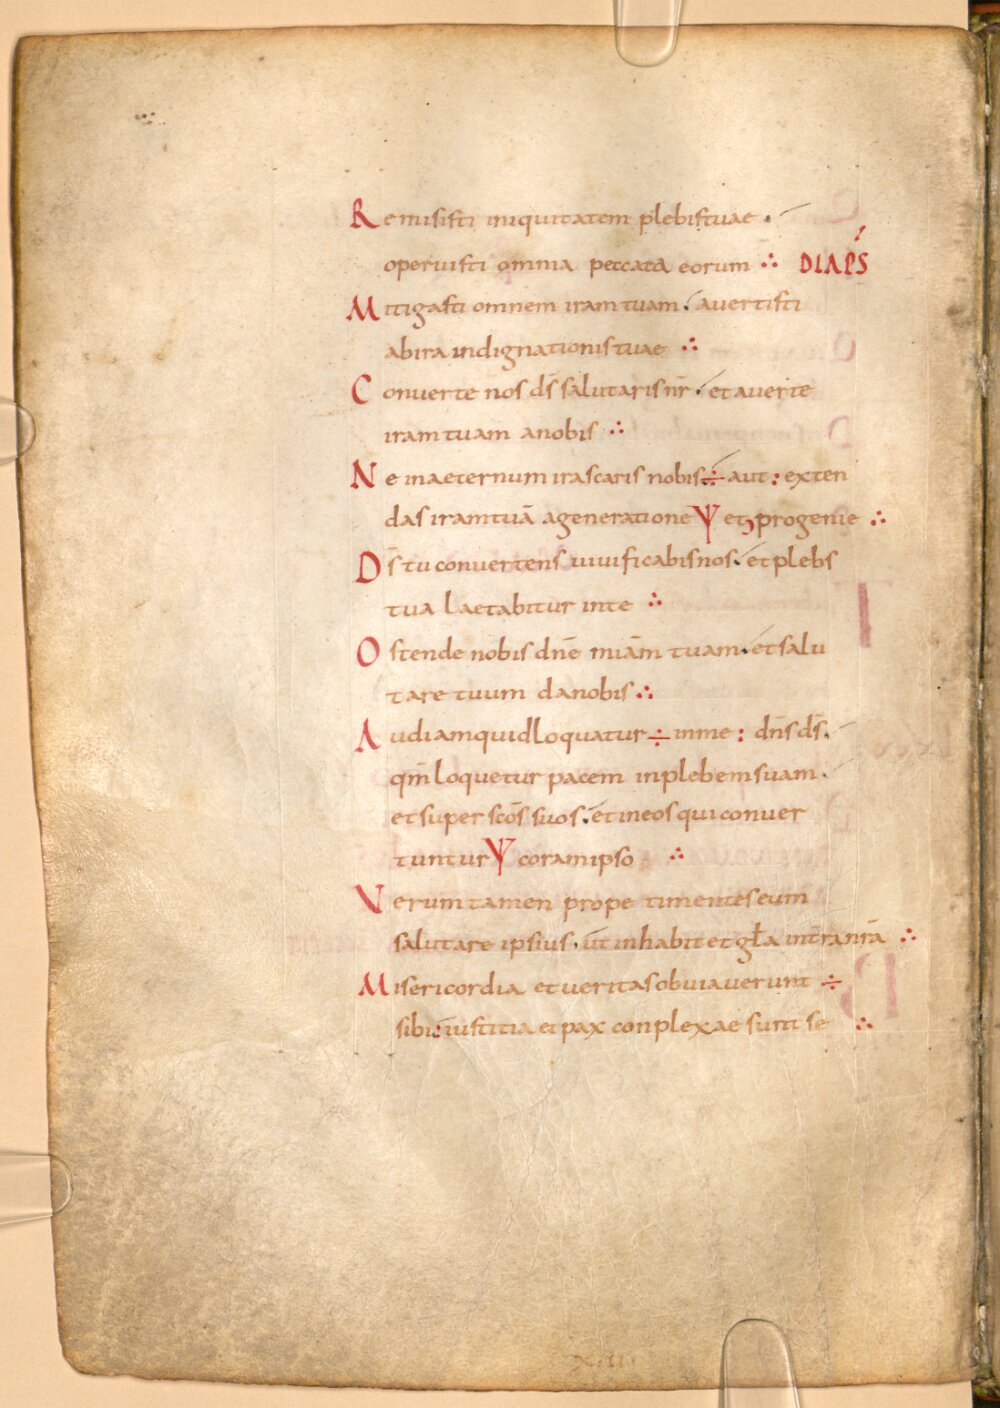 Remisisti iniquitatem plebistuae .
operuisti omnia peccata eorum ∴ DIAPS̄
Mitigasti omnem iram tuam . avertisti
abira indignationistuae ∴
Converte nos ds̄ salutarisnr̄ . et averte
iram tuam anobis ∴
Ne inaeternum irascaris nobis ÷ aut : exten
das iramtuā ageneratione Ψ etꝓprogenie ∴
Ds̄ tu convertens vivificabisnos . et plebs
tua laetabitur inte ∴
Ostende nobis dn̄e miām tuam . etsalu
tare tuum danobis ∴
Audiamquidloquatur ÷ inme : dn̄s ds̄ .
qm̄ loquetur pacem inplebemsuam .
etsuper scōs suos . etineosquiconver
tuntur Ψ coramipso ∴
Verumtamen prope timenteseum
salutare ipsius . ut inhabitet gƚa inter̄ranrā ∴
Misericordia etveritasobviaverunt ÷
sibi : iustitia et pax conplexae sunt se ∴